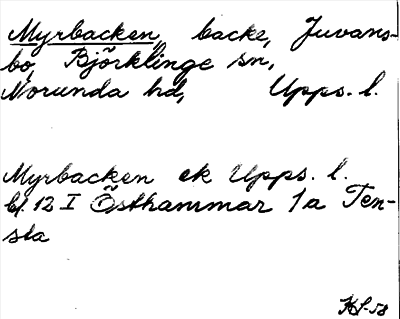 Myrbacken, backe, Juvans-
bo, Björklinge sn,
Norunda hd, Upps. l.
Myrbacken ek Upps. l.
bl. 12 I Östhammar 1a Ten-
sta
KS-58